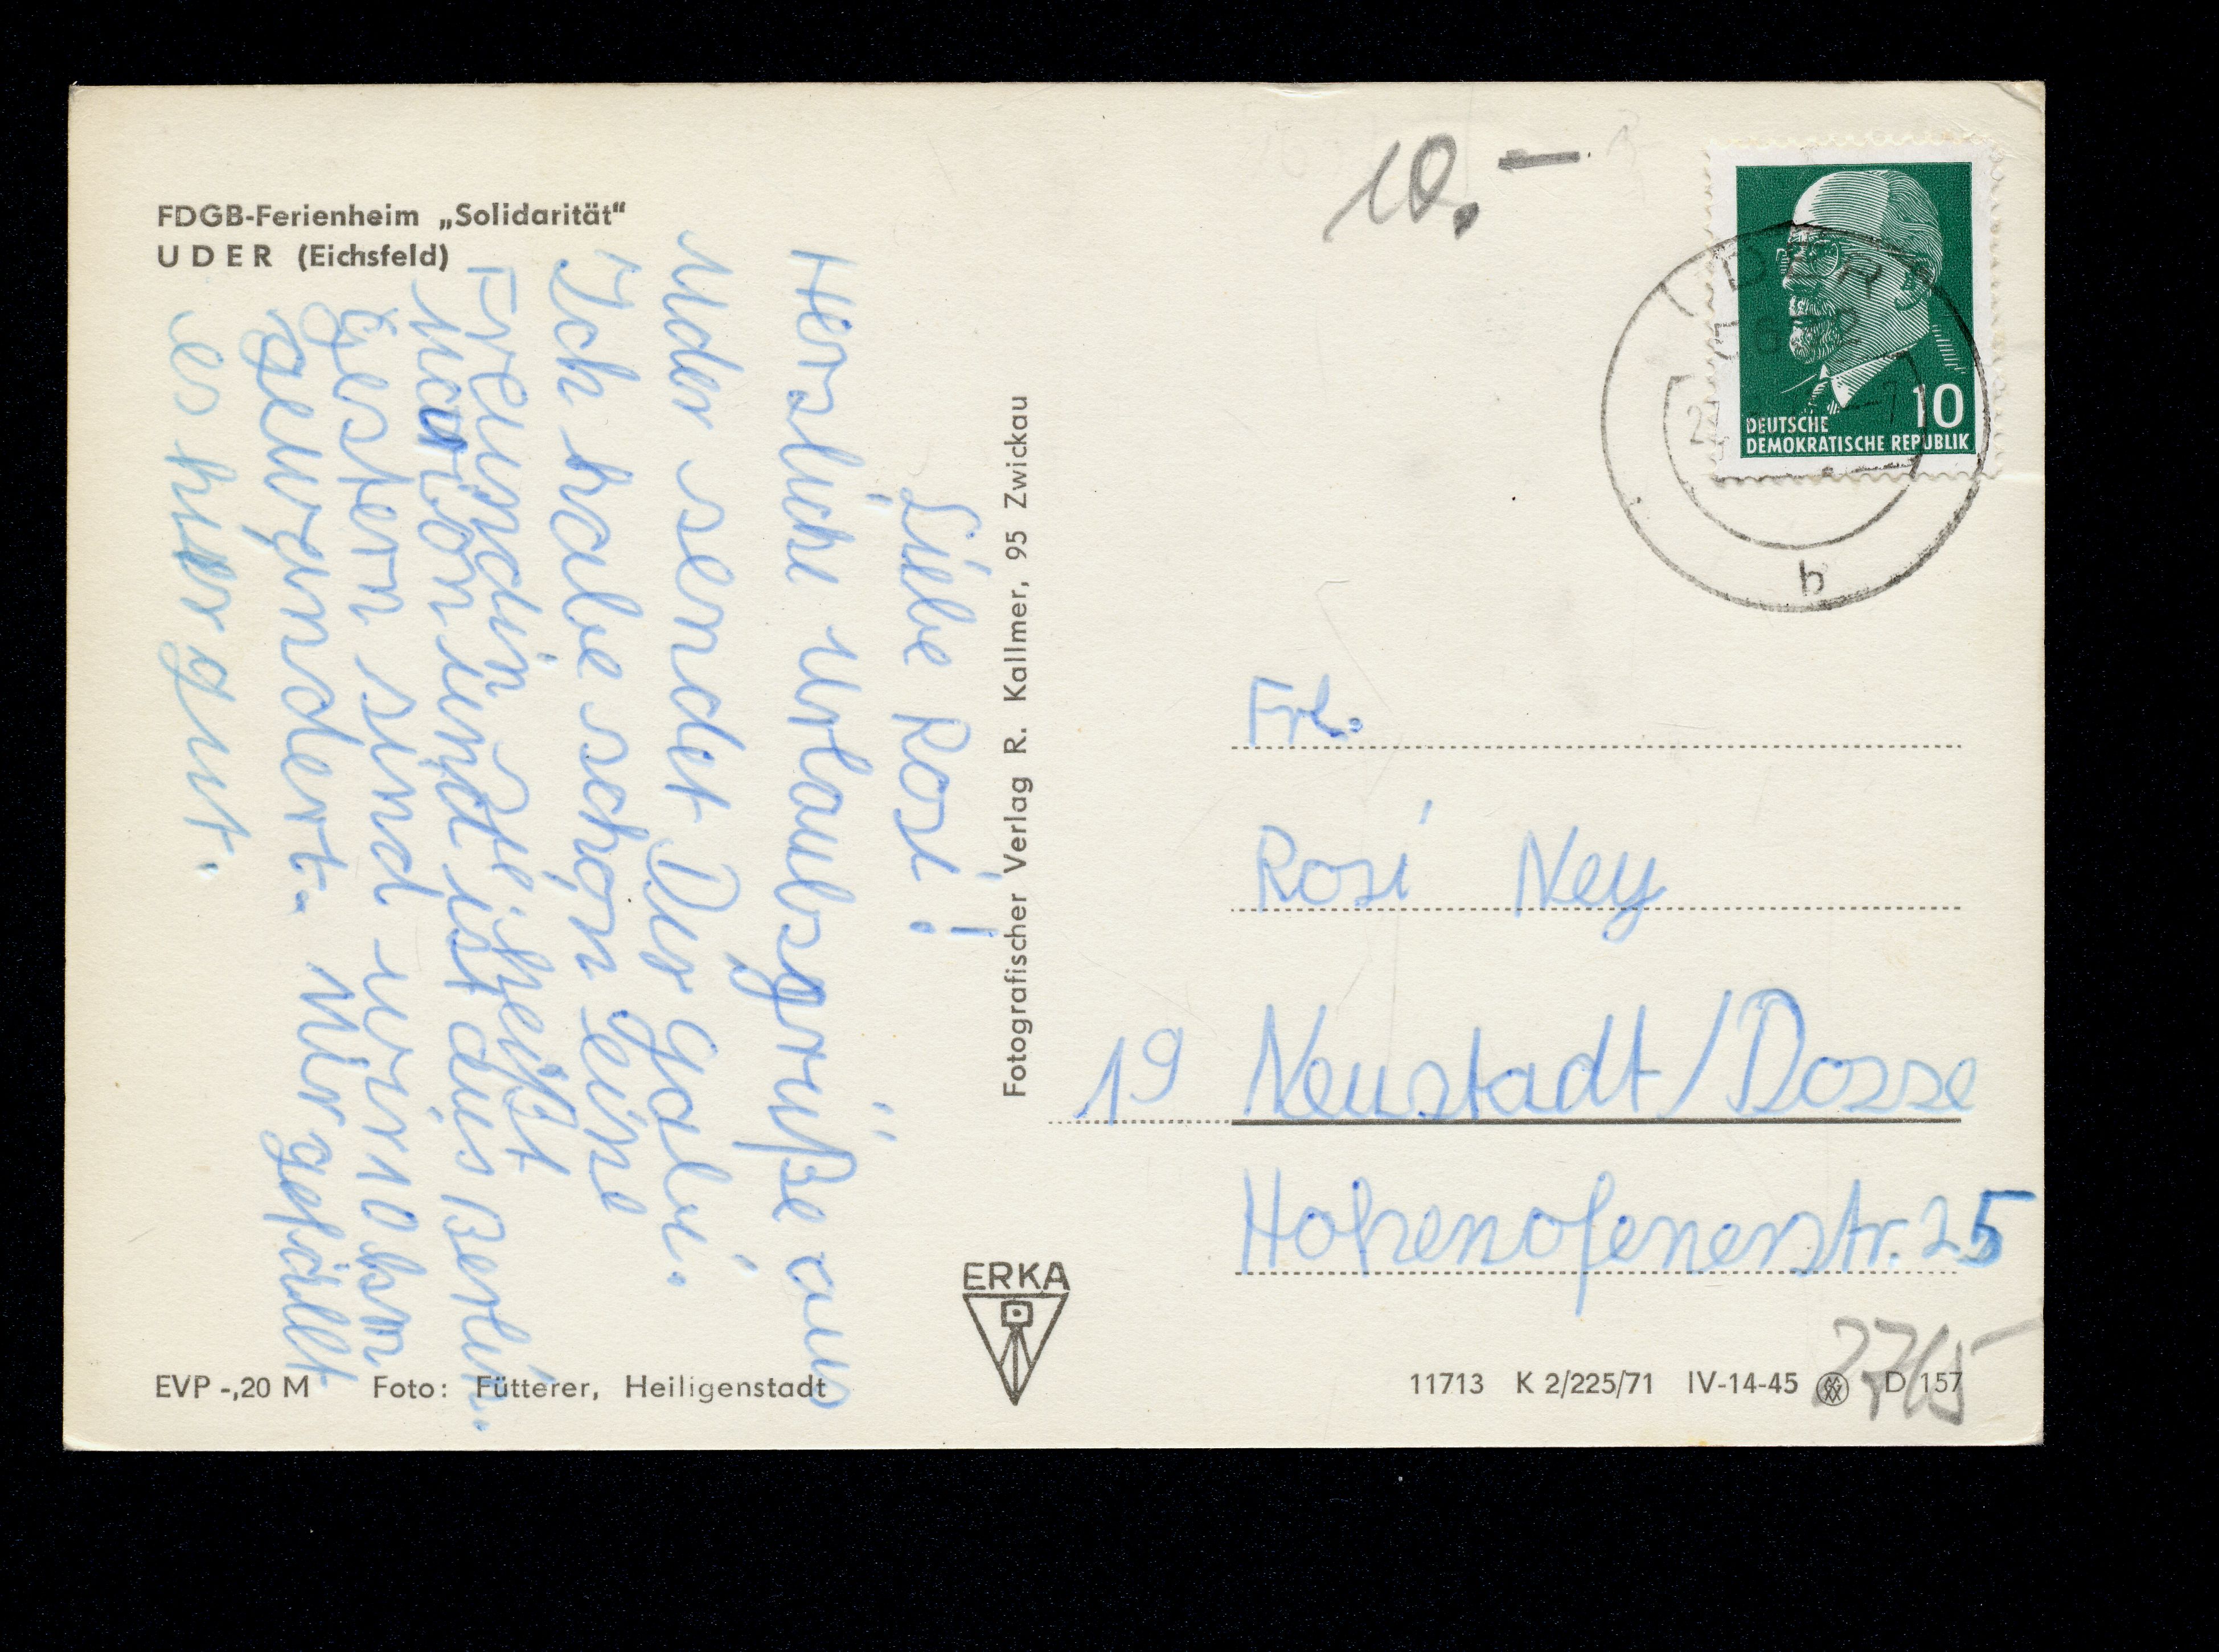 FDGB-Ferienheim „Solidarität“
UDER (Eichsfeld)
Liebe Rosi!
Hersliche Urlaubsgrüße aus
Uder sendet Dir Gabi.
Ich habe schon eine
Freundin. Sie heißt
Marion und ist aus Berlin.
Gestern sind wir 10 km
gewandert. Mir gefällt
es hier gut.
Fotografischer Verlag R. Kallmer, 95 Zwickau
ERKA
EVP -,20 M Foto: Fütterer, Heiligenstadt
10.-
10
DEUTSCHE
DEMOKRATISCHE REPUBLIK
UDER
b
Frl.
Rosi Ney
19 Neustadt/Dosse
Hohenofenerstr. 25
11713 K 2/225/71 IV-14-45 D 157